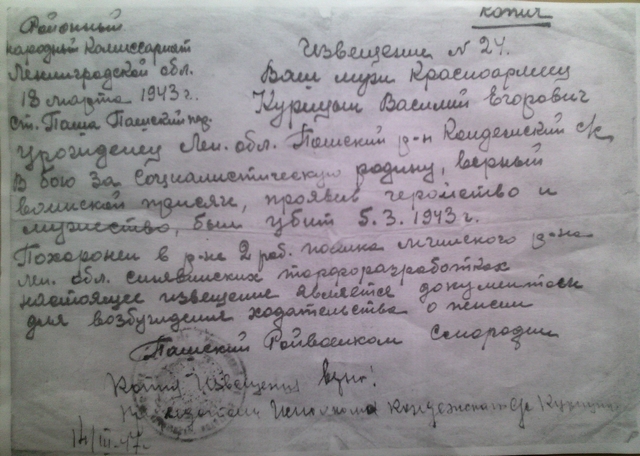 копия
Районный
народный Комиссариат
Ленинградской обл.
18 марта 1943 г.
ст. Паша Пашский
Извещение № 24.
Ваш муж Красноармеец
Курицын Василий Егорович
уроженец Лен. обл. Пашский р-н Кондежский с/с
В бою за Социалистическую родину, верный
воинской присяге, проявив геройство и
мужество, был убит 5.3.1943 г.
Похоронен в р-не 2 раб. поселка Мгинского р-на
Лен. обл. синявинских торфоразработках
настоящее извещение является документом
для возбуждения ходательства о пенсии
Пашский Райвоенком
Копия Извещения верно!
Исполкома Кондежского
14/III-47 г.